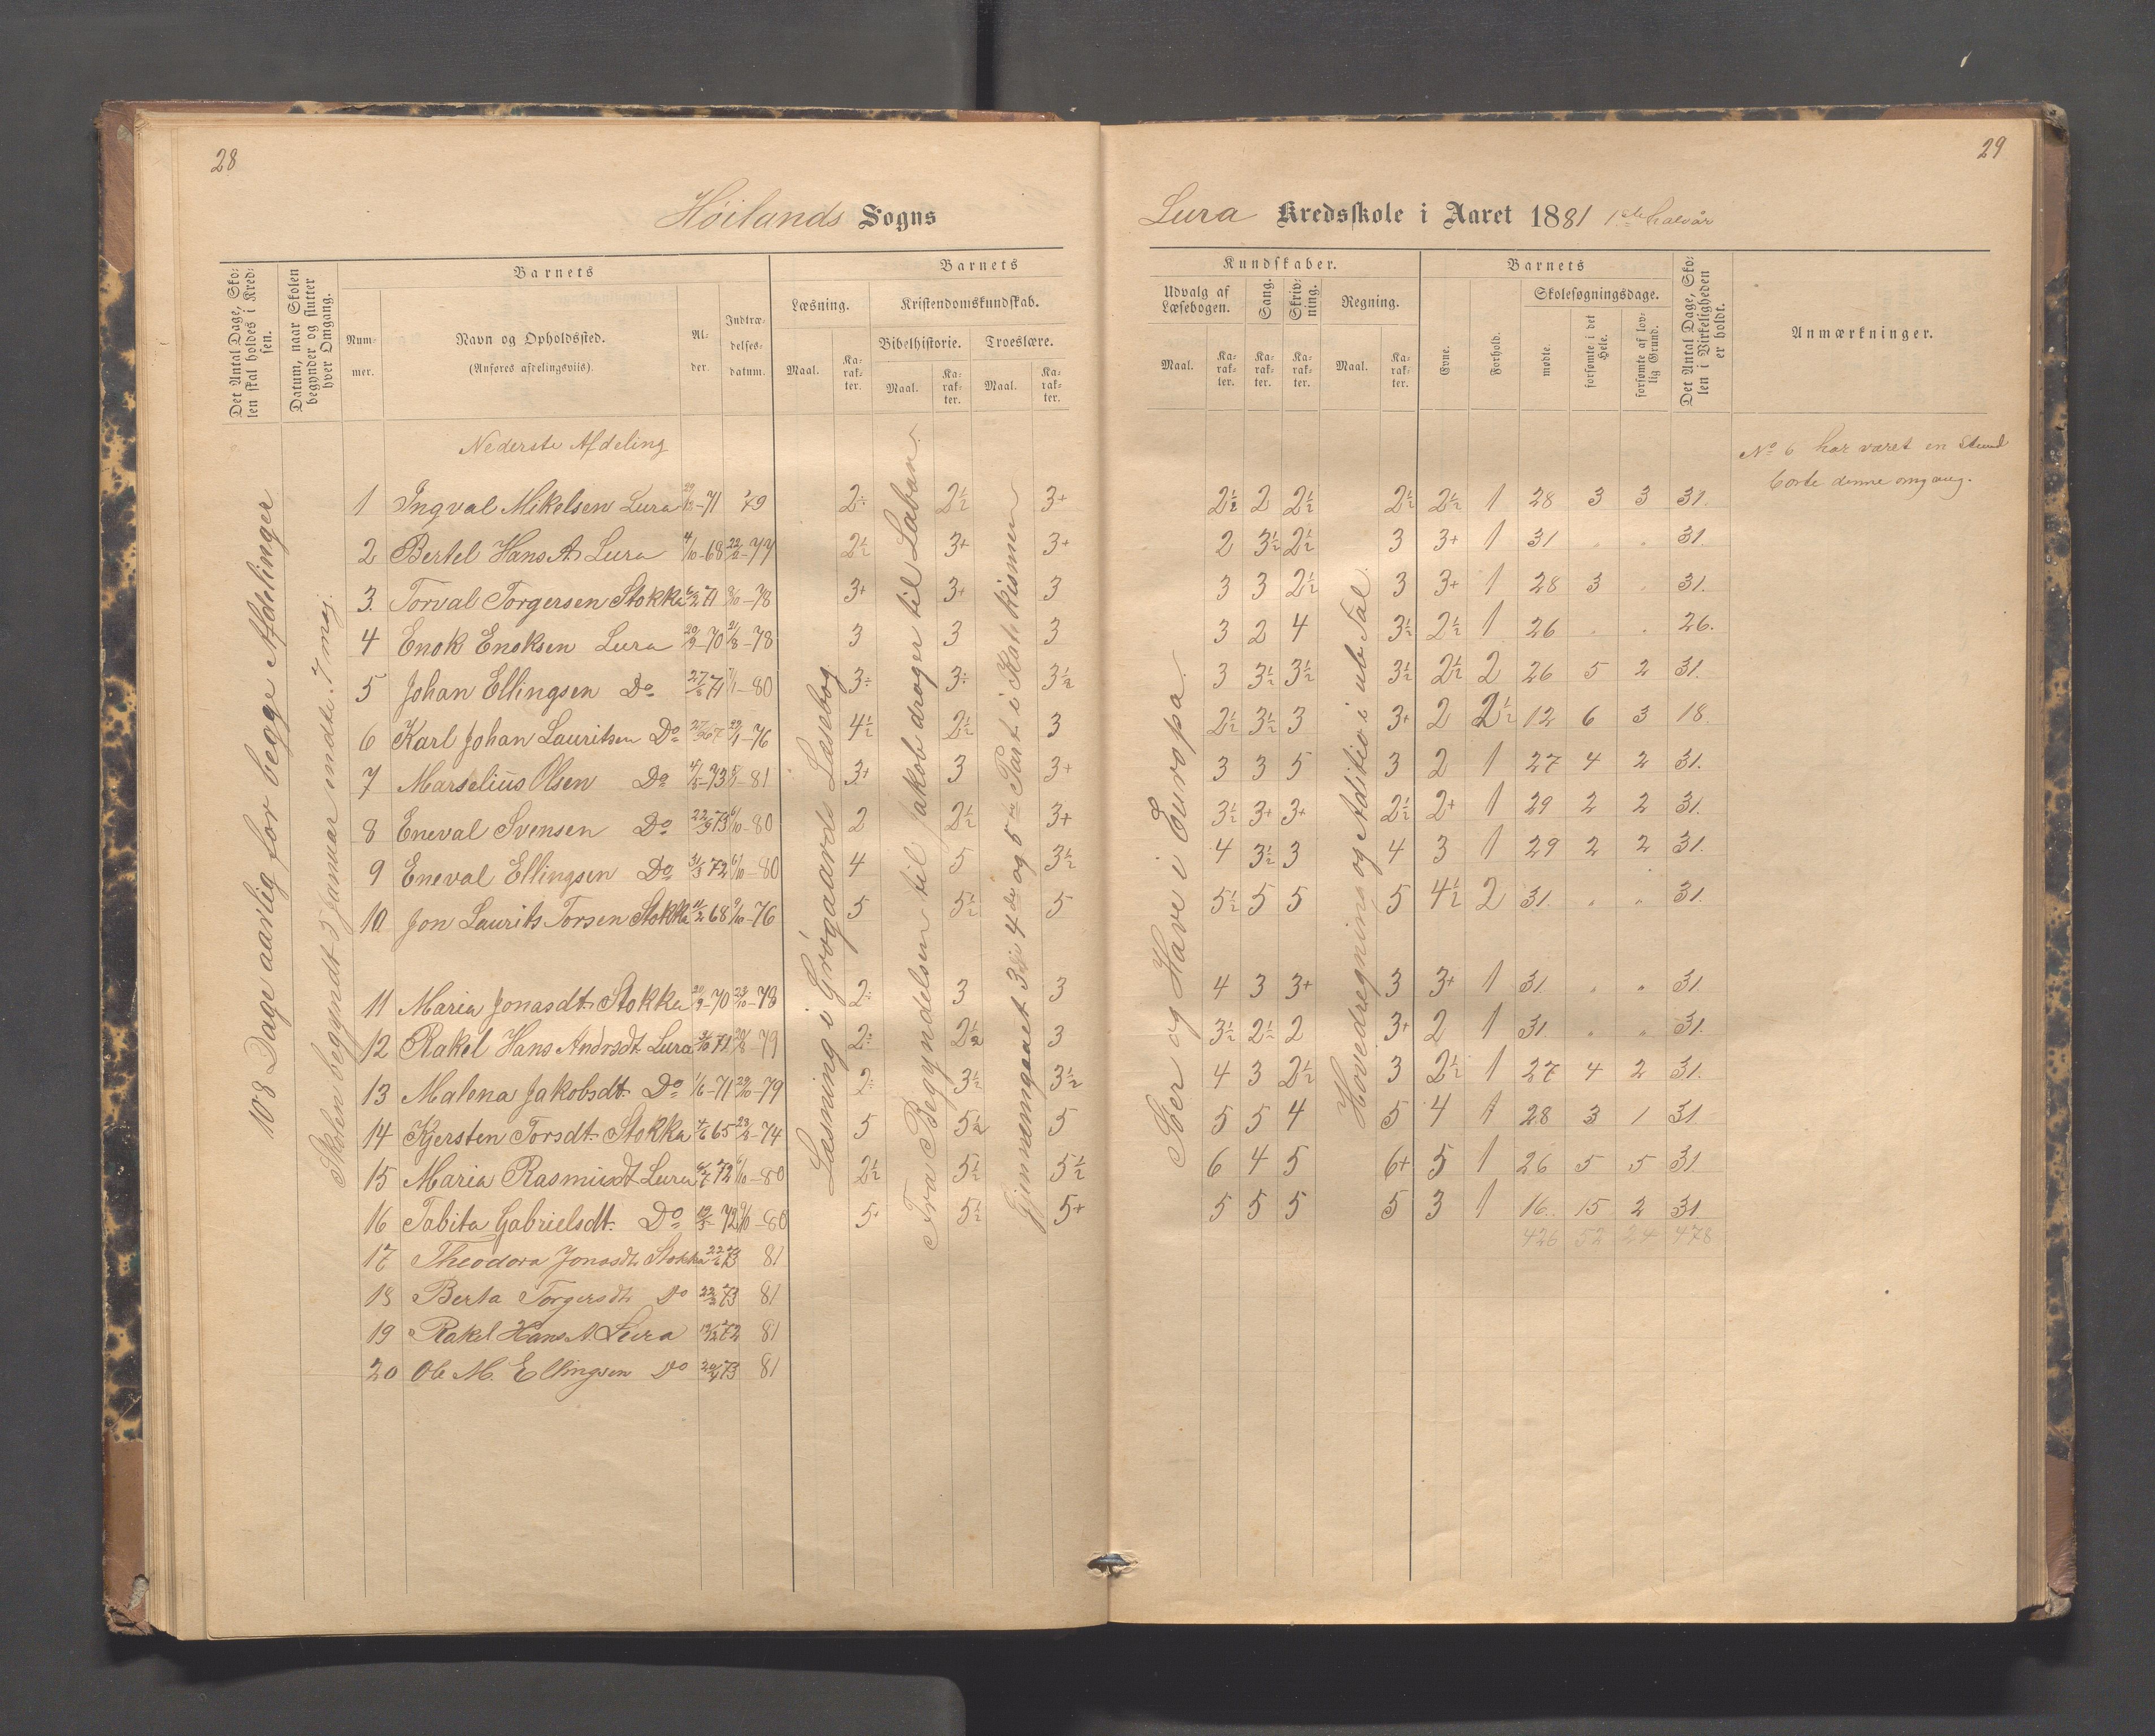 28
Höilands Sogns
Det Antal Dage, Sko-
len skal holdes i Kred-
sen.
Datum, naar Skolen
begynder og slutter
hver Omgang.
Barnets
Num-
mer.
Navn og Opholdssted.
(Anføres afdelingsviis).
Al-
der.
Indtræ-
delses-
datum.
Barnets
Læsning.
Maal.
Ka-
rak-
ter.
Kristendomskundskab.
Bibelhistorie.
Troeslære.
Maal.
Ka-
rak-
ter.
Maal.
Ka-
rak-
ter.
108 Dage aarlig for begge Afdelinger
Skolen begyndt 3 Januar endte 7 maj.
Læsning i Grögaards Læsebog
Fra Begyndelsen til Jakob drager til Laban.
Gjennemgaaet 3die 4de og 5te Part i Katekismen
Nederste Afdeling
1 Ingval Mikelsen Lura -71 79 2÷ 2½ 3+
2 Bertel Hans A. Lura 4/10-68 -77 2½ 3+ 3+
3. Torval Torgersen Stokka 71 -78 3+ 3+ 3
4 Enok Enoksen Lura 20/9-70 -78 3 3 3
5 Johan Ellingsen Do 71 -80 3÷ 3÷ 3½
6 Karl Johan Lauritsen Do 67 -76 4½ 2½ 3
7 Marselius Olsen Do -73 -81 3+ 3 3+
8 Eneval Svensen Do 22/9 73 6/10-80 2 2½ 3+
9 Eneval Ellingsen Do 31/3 72 6/10-80 4 5 3½
10 Jon Laurits Torsen Stokka 11/2 68 9/10-76 5 5½ 5
11 Maria Jonasdt. Stokka -70 23/10-78 2÷ 3 3
12 Rakel Hans Andrsdt. Lura 71 -79 2÷ 2½ 3
13 Malena Jakobsdt. Do 1/6-71 -79 2÷ 3½ 3½
14 Kjersten Torsdt. Stokka 65 -74 5 5½ 5
15 Maria Rasmusdt. Lura 72 6/10-80 2½ 5½ 5½
16 Tabita Gabrielsdt. Do 72 -80 5+ 5½ 5+
17 Theodora Jonasdt. Stokka 73 81
18 Berta Torgersdt. Do 73 81
19 Rakel Hans A. Lura 72 81
20 Ole M. Ellingsen Do 73 81
29
Lura Kredsskole i Aaret 1881 1ste halvår
Kundskaber.
Udvalg af
Læsebogen.
Maal.
Ka-
rak-
ter.
Sang.
Ka-
rak-
ter.
Skriv-
ning.
Ka-
rak-
ter.
Regning.
Maal.
Ka-
rak-
ter.
Barnets
Evne.
Forhold.
Skolesøgningsdage.
mødte.
forsømte i det
Hele.
forsømte af lov-
lig Grund.
Det Antal Dage, Sko-
len i Virkeligheden
er holdt.
Anmærkninger.
Söer og Have i Europa.
Hovedregning og Aditio i ub Tal.
No 6 har været en stund
borte denne omgang.
2½ 2 2½ 2½ 2½ 1 28 3 3 31.
2 3½ 2½ 3 3+ 1 31 " " 31.
3 3 2½ 3 3+ 1 28 3 " 31.
3 2 4 3½ 2½ 1 26 " " 26.
3 3½ 3½ 3½ 2½ 2 26 5 2 31.
2½ 3½ 3 3+ 2 2½ 12 6 3 18.
3 3 5 3 2 1 27 4 2 31.
3½ 3+ 3+ 2½ 2+ 1 29 2 2 31.
4 3½ 3 4 3 1 29 2 2 31.
5½ 5 5 5 4½ 2 31. " " 31.
4 3 3+ 3 3+ 1 31. " " 31.
3½ 2½ 2 3+ 2 1 31. " " 31.
4 3 2½ 3 2½ 1 27 4 2 31.
5 5 4 5 4 1 28 3 1 31.
6 4 5 6+ 5 1 26 5 5 31.
5 5 5 5 3 1 16. 15 2 31
426 52 24 478